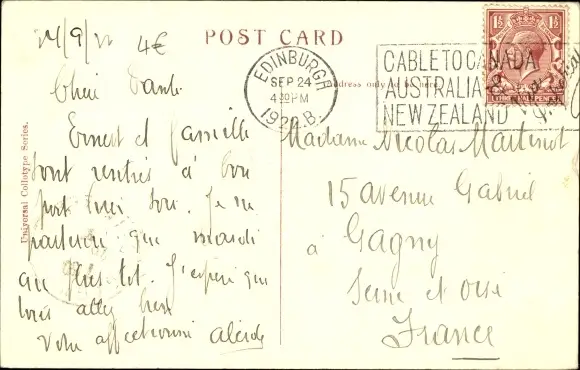 24/9/22 4€
POST CARD
EDINBURGH
SEP 24
4 PM
192
CABLE TO CANADA
AUSTRALIA
NEW ZEALAND
Address only
1½ 1½
Chère Tante
Ernest et famille
sont rentrés à bon
port hier soir. Je ne
partirai que mardi
au plus tôt. J'espère que
vous allez bien
Votre affectionné Alcide
Universal Collotype Series.
Madame Nicolas Martinot
15 avenue Gabriel
à Gagny
Seine et Oise
France